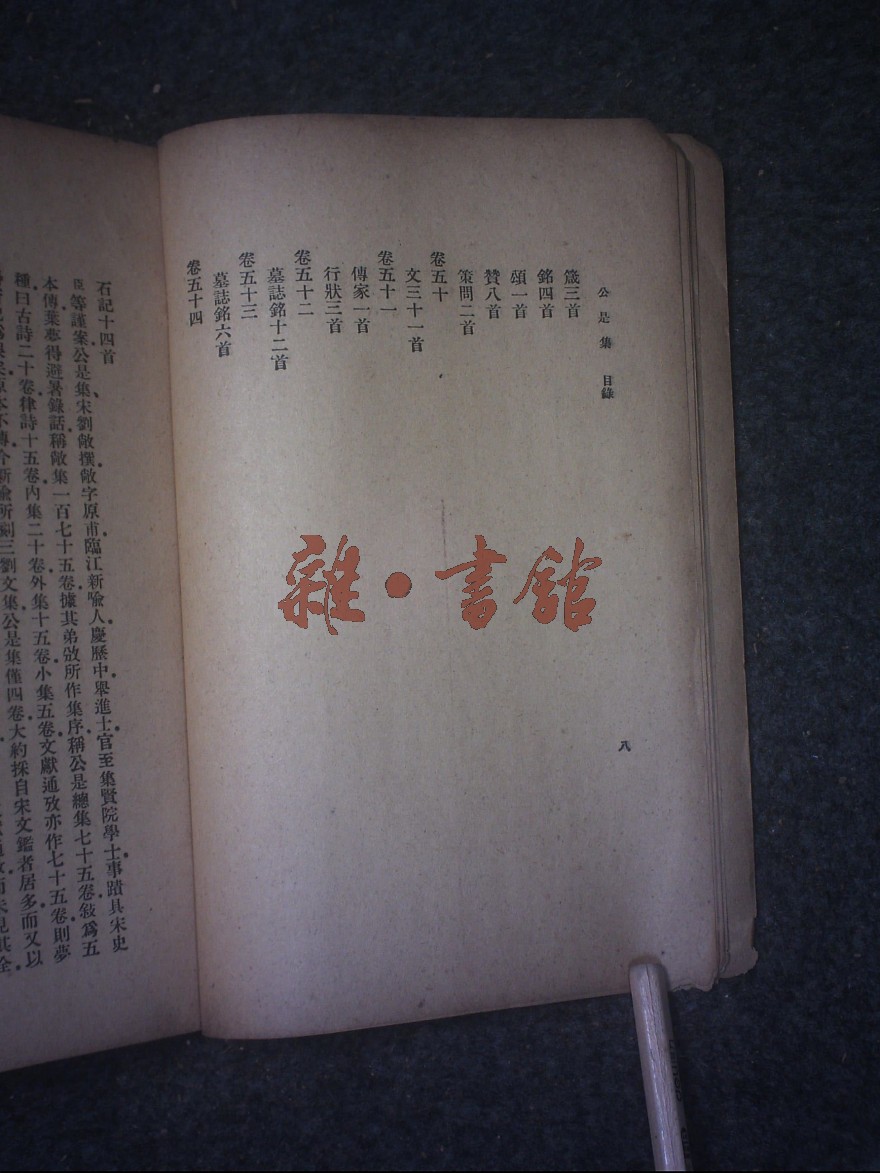 公是集 目錄
箴三首
銘四首
頌一首
贊八首
策問二首
卷五十
文三十一首
卷五十一
傳家一首
行狀三首
卷五十二
墓誌銘十二首
卷五十三
墓誌銘六首
卷五十四
八
石記十四首
臣等謹案公是集宋劉敞撰敞字原甫臨江新喩人慶歷中舉進士官至集賢院學士事蹟具宋史
本傳葉夢得避暑錄話稱敞集一百七十五卷據其弟攽所作集序稱公是總集七十五卷敍爲五
種曰古詩二十卷律詩十五卷內集二十卷外集十五卷小集五卷文獻通攷亦作七十五卷則夢
不傳今新喩所刻三劉文集公是集僅四卷大約採自宋文鑑者居多而又以
雜·書館